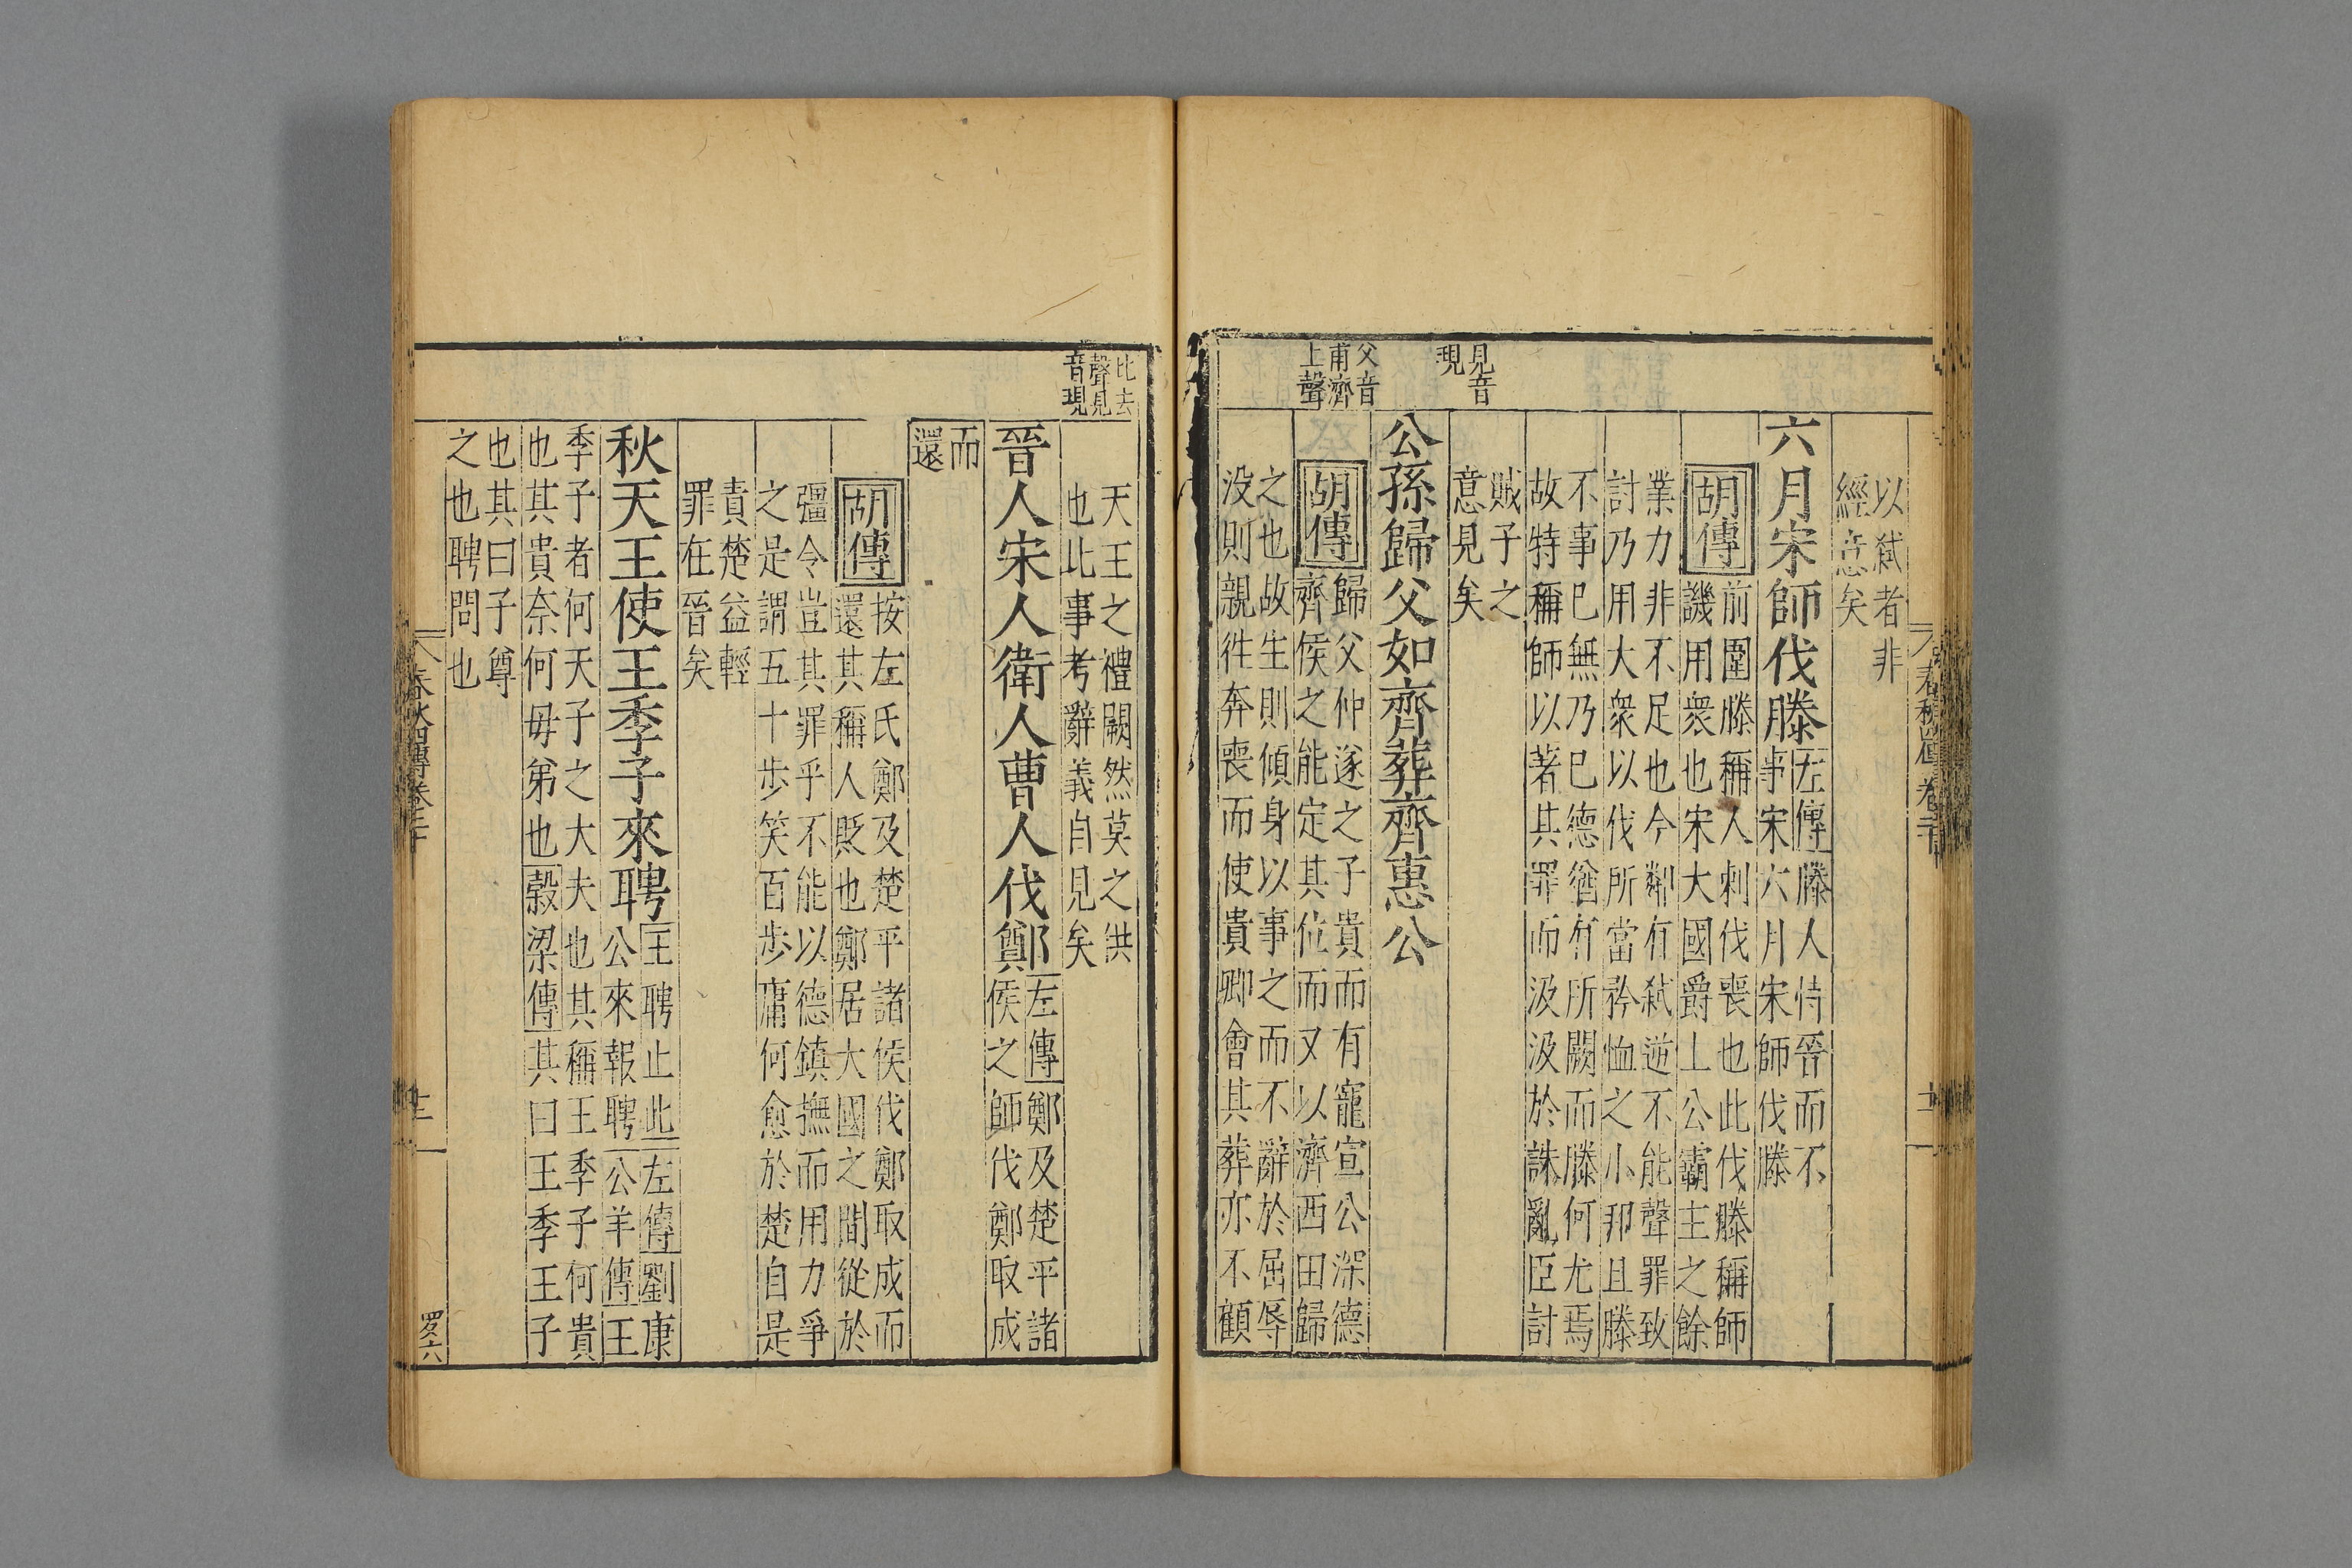 春秋四傳卷二十
以弑者非
經意矣
六月宋師伐滕
左傳滕人恃晉而不
事宋六月宋師伐滕
胡傳
前圍滕稱人刺伐喪也此伐滕稱師
譏用衆也宋大國爵上公霸主之餘
業力非不足也今鄰有弑逆不能聲罪致
討乃用大衆以伐所當矜恤之小邦且滕
不事已無乃已德猶有所闕而滕何尤焉
故特稱師以著其罪而汲汲於誅亂臣討
賊子之
意見矣
見音
現
公孫歸父如齊葬齊惠公
父音
甫濟
上聲
胡傳
歸父仲遂之子貴而有寵宣公深德
齊侯之能定其位而又以濟西田歸
之也故生則傾身以事之而不辭於屈辱
没則親徃奔喪而使貴卿會其葬亦不顧
比去
聲見
音現
天王之禮闕然莫之供
也此事考辭義自見矣
晉人宋人衛人曹人伐鄭
左傳鄭及楚平諸
侯之師伐鄭取成
而
還
胡傳
按左氏鄭及楚平諸侯伐鄭取成而
還其稱人貶也鄭居大國之間從於
彊令豈其罪乎不能以德鎮撫而用力爭
之是謂五十步笑百步庸何愈於楚自是
責楚益輕
罪在晉矣
秋天王使王季子來聘
王聘止此左傳劉康
公來報聘公羊傳王
季子者何天子之大夫也其稱王季子何貴
也其貴奈何毋弟也穀梁傳其曰王季王子
也其曰子尊
之也聘問也
春秋四傳卷二十
十二
罗六